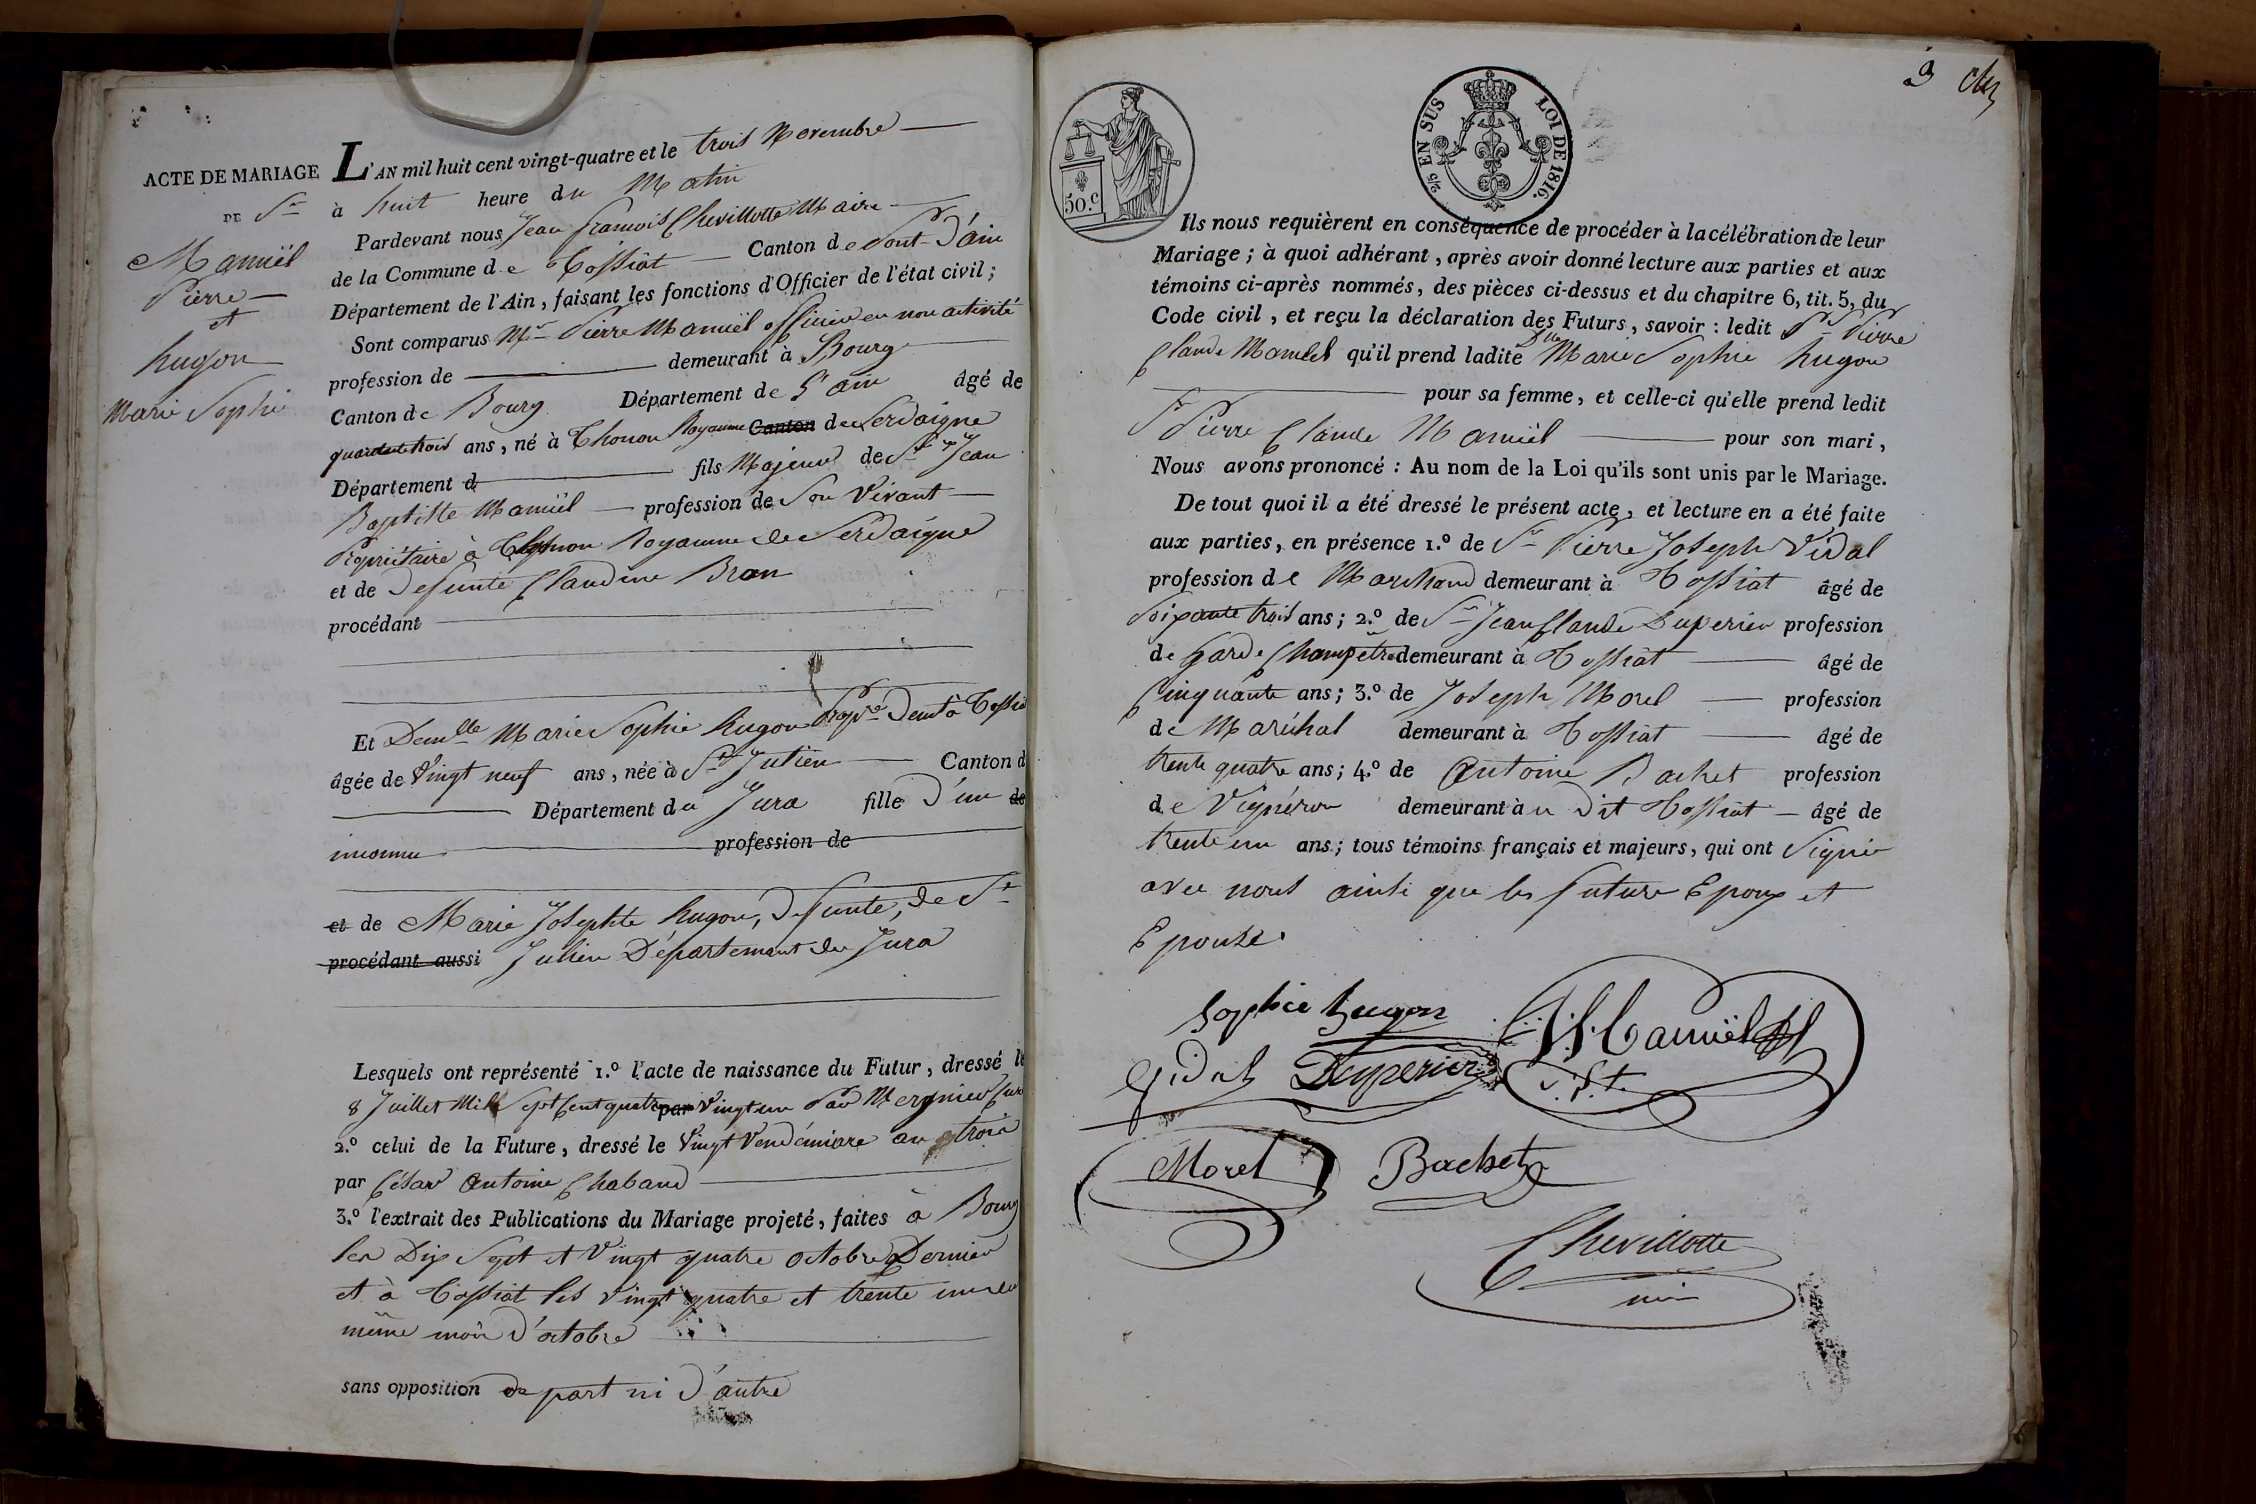 ACTE DE MARIAGE
DE Sr
Manuël
Pierre
et
hugon
Marie Sophie
L'AN mil huit cent vingt-quatre et le trois Novembre
à huit heure du Matin
Pardevant nous Jean françois Chevillotte Maire
de la Commune de Tossiat Canton de Pont-d'ain
Département de l'Ain, faisant les fonctions d'Officier de l'état civil;
Sont comparus Mr Pierre Manuël officier en non activité
profession de demeurant à Bourg
Canton de Bourg Département de l'ain âgé de
quarante trois ans, né à Thonon Royaume Canton de Serdaigne
Département d fils Majeur de Sr Jean
Baptiste Manuël profession de Son vivant
Propriétaire à Thonon Royaume de Serdaigne
et de defunte Claudine Bron
procédant
Et Demlle Marie Sophie hugon Propre Demt à Tossia
âgée de Vingt neuf ans, née à St Julien Canton d
Département du Jura fille d'un de
inconnu profession de
et de Marie Josephte hugon, defunte, de St
procédant aussi Julien Département du Jura
Lesquels ont représenté 1.º l'acte de naissance du Futur, dressé le
8 Juillet Mil Sept Cent quatre par vingt un Par Mergnier Curé
2.º celui de la Future, dressé le Vingt Vendémiare an trois
par César Antoine Chaband
3.º l'extrait des Publications du Mariage projeté, faites à Bourg
les Dix Sept et Vingt quatre octobre Dernier
et à Tossiat les vingt quatre et trente un du
même mois d'octobre
sans opposition de part ni d'autre
3
50.c
2/5 EN SUS
LOI DE 1816.
Ils nous requièrent en conséquence de procéder à la célébration de leur
Mariage; à quoi adhérant, après avoir donné lecture aux parties et aux
témoins ci-après nommés, des pièces ci-dessus et du chapitre 6, tit. 5, du
Code civil, et reçu la déclaration des Futurs, savoir: ledit Sr Pierre
Claude Manuël qu'il prend ladite Dlle Marie Sophie hugon
pour sa femme, et celle-ci qu'elle prend ledit
Sr Pierre Claude Manuël pour son mari,
Nous avons prononcé: Au nom de la Loi qu'ils sont unis par le Mariage.
De tout quoi il a été dressé le présent acte, et lecture en a été faite
aux parties, en présence 1.º de Sr Pierre Joseph Vidal
profession de Marchand demeurant à Tossiat âgé de
Soixante trois ans; 2.º de Sr Jean Claude Duperier profession
de Garde Champêtre demeurant à Tossiat âgé de
Cinquante ans; 3.º de Joseph Morel profession
de Maréchal demeurant à Tossiat âgé de
trente quatre ans; 4.º de Antoine Bachet profession
de Vigneron demeurant à u dit Tossiat âgé de
trente un ans; tous témoins français et majeurs, qui ont Signé
avec nous ainsi que les future Epoux et
Epouse.
Sophie hugon
Manuël
Vidal Duperier
Morel Bachet
Chevillotte